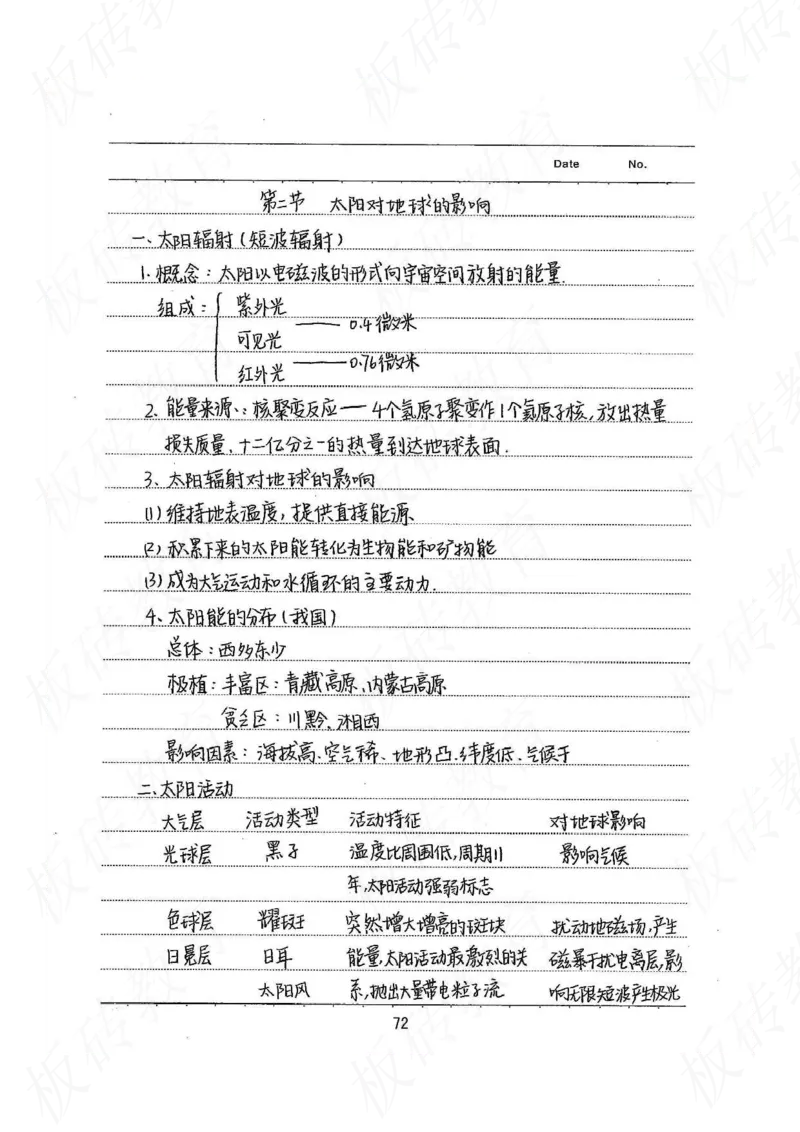 Date No.
第二节 太阳对地球的影响
一、太阳辐射(短波辐射)
1. 概念:太阳以电磁波的形式向宇宙空间放射的能量.
组成:{ 紫外光
—— 0.4微米
可见光
—— 0.76微米
红外光
2. 能量来源:核聚变反应——4个氢原子聚变作1个氦原子核,放出热量
损失质量、十二亿分之一的热量到达地球表面.
3、太阳辐射对地球的影响
(1)维持地表温度,提供直接能源
(2)积累下来的太阳能转化为生物能和矿物能
(3)成为大气运动和水循环的主要动力.
4、太阳能的分布(我国)
总体:西多东少
极植:丰富区:青藏高原、内蒙古高原
贫乏区:川黔、湘西
影响因素:海拔高、空气稀、地形凸、纬度低、气候干
二、太阳活动
大气层 活动类型 活动特征 对地球影响
光球层 黑子 温度比周围低,周期11 影响气候
年,太阳活动强弱标志
色球层 耀斑 突然增大增亮的斑块 扰动地磁场,产生
日冕层 日耳 能量,太阳活动最激烈的关 磁暴干扰电离层,影
太阳风 系,抛出大量带电粒子流 响无限短波产生极光
72
板砖教育